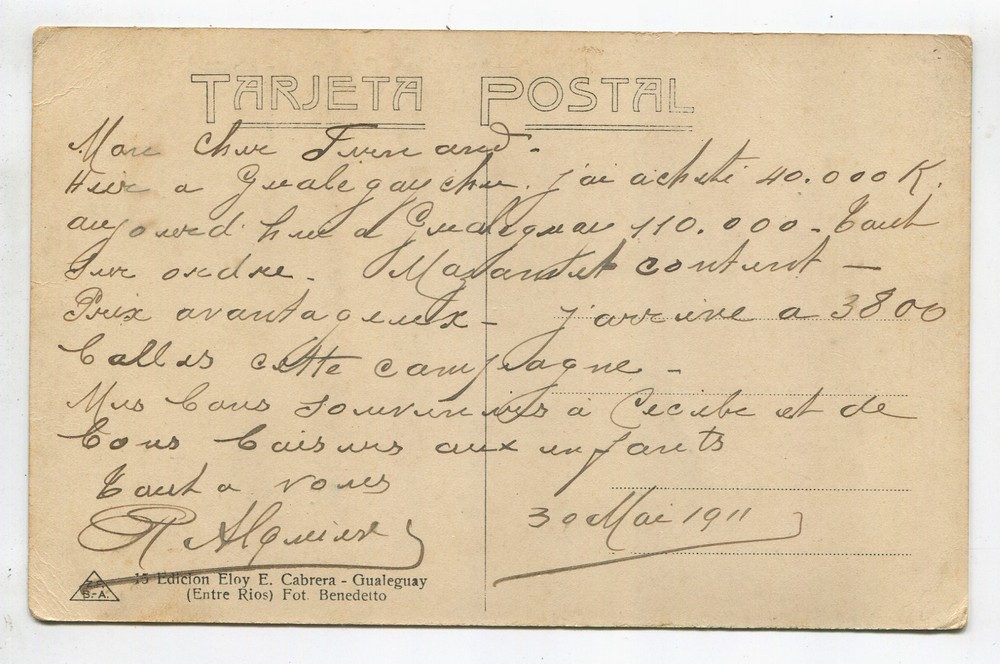 TARJETA POSTAL
Mon cher Fernand -
Hier a Gualegaychu. j'ai acheté 40.000 K.
aujourd'hui a Gualeguay 110.000 - tout
sur ordre - et content -
Prix avantageux - j'arrive a 3800
balles cette campagne -
Mes bons souvenirs à Cecile et de
bons baisers aux enfants
Tout a vous
30 Mai 1911
15 Edicion Eloy E. Cabrera - Gualeguay
(Entre Rios) Fot. Benedetto